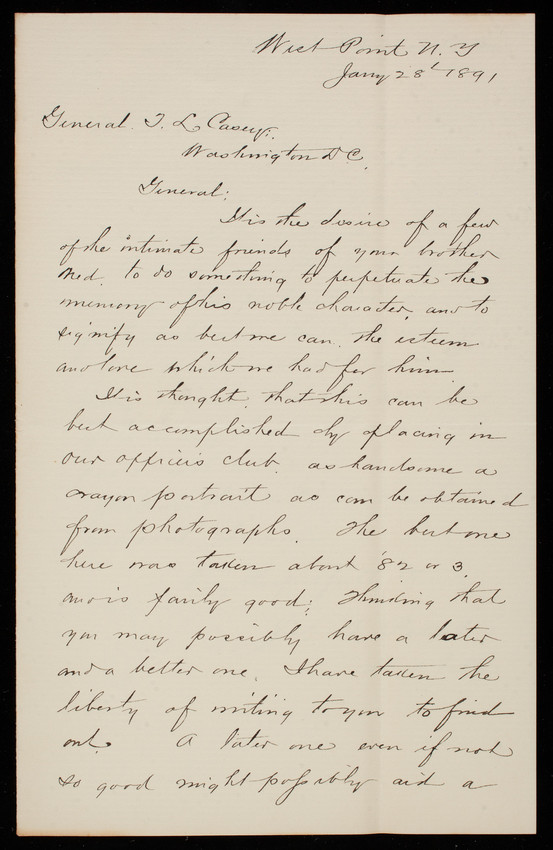 West Point N. Y
Jany 28th 1891
General T. L. Casey:
Washington D C.
General:
It is the desire of a few
of the intimate friends of your brother
Ned. to do something to perpetuate the
memory of his noble character, and to
signify as best we can the esteem
and love which we had for him.
It is thought that this can be
best accomplished by placing in
our officers club. as handsome a
crayon portrait as can be obtained
from photographs. The best one
here was taken about '82 or 3.
and is fairly good; Thinking that
you may possibly have a later
and a better one, I have taken the
liberty of writing to you to find
out. A later one even if not
so good might possibly aid a